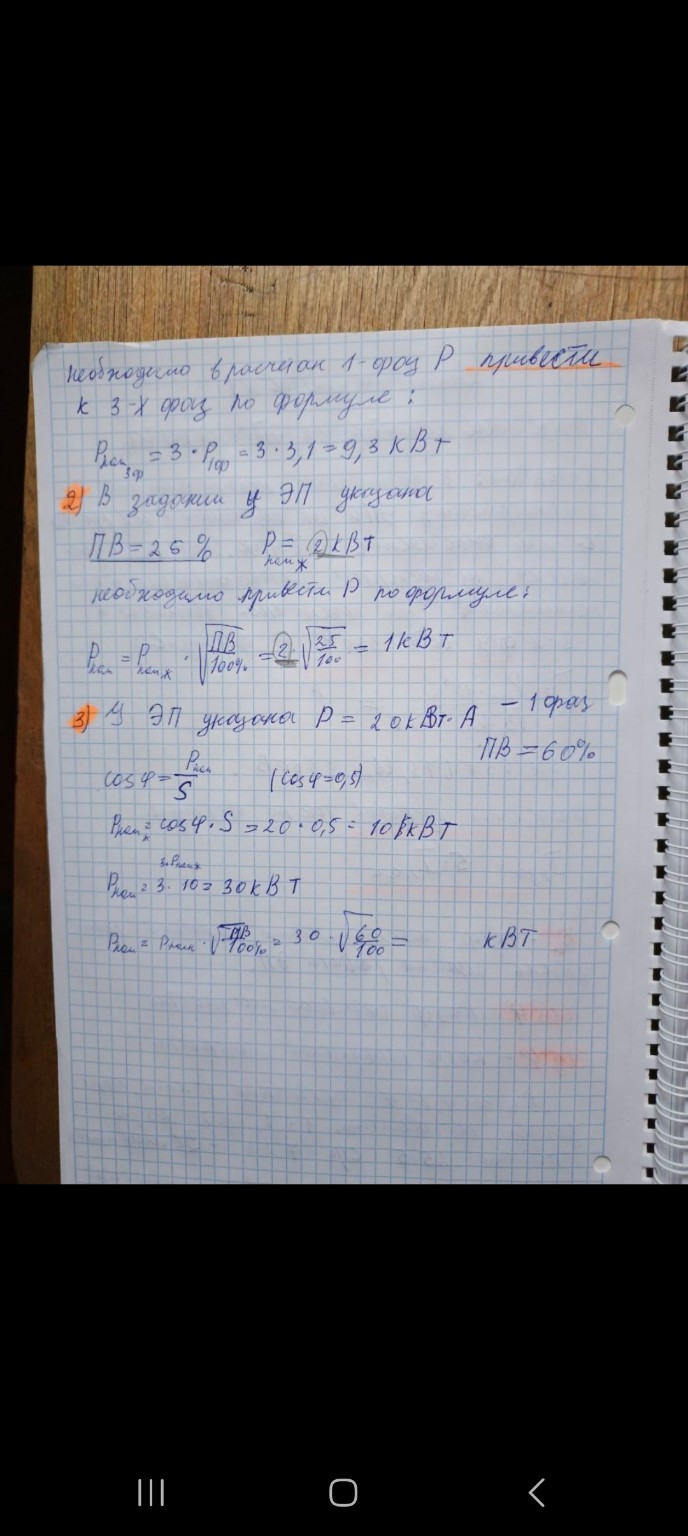 необходимо в расчетах 1-фаз P привести
к 3-х фаз по формуле:
Pном3ф = 3 · P1ф = 3 · 3,1 = 9,3 кВт
2) В задании у ЭП указана
ПВ = 25 % Pном ж = 2 кВт
необходимо привести P по формуле:
Pном = Pном ж · √ПВ/100% = 2 √25/100 = 1 кВт
3) У ЭП указана P = 20 кВт·А - 1 фаз
ПВ = 60%
cos φ = Pном/S (cos φ = 0,5)
Pном = cos φ · S = 20 · 0,5 = 10 кВт
Pном = 3 · 10 = 30 кВт
Pном = Pном · √ПВ/100% = 30 · √60/100 = кВт